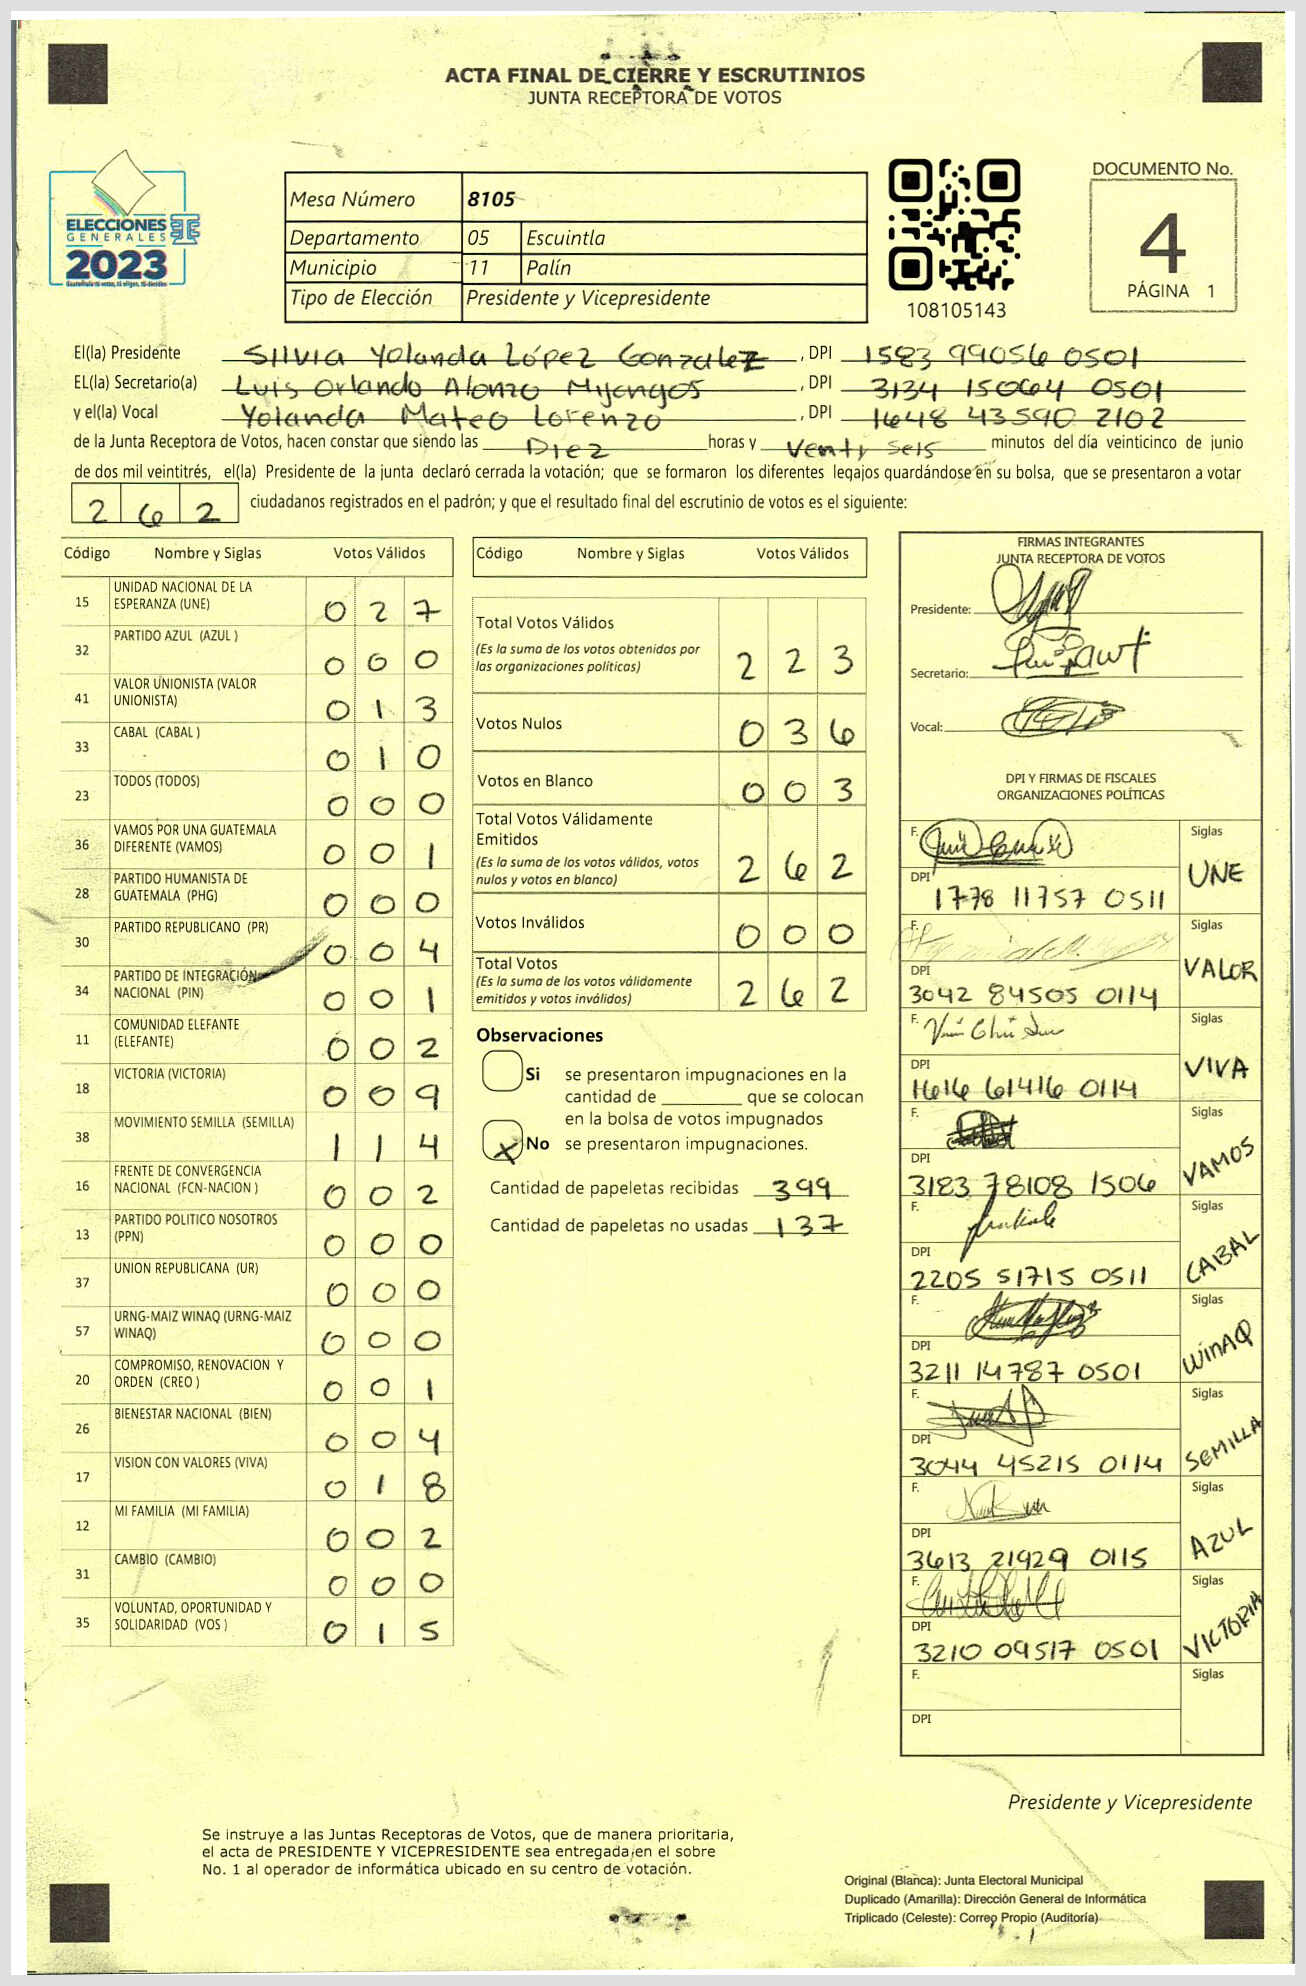 ACTA FINAL DE CIERRE Y ESCRUTINIOS
JUNTA RECEPTORA DE VOTOS
ELECCIONES
GENERALES
2023
Mesa Número 8105
Departamento 05 Escuintla
Municipio 11 Palín
Tipo de Elección Presidente y Vicepresidente
108105143
DOCUMENTO No.
4
PÁGINA 1
El(la) Presidente Silvia Yolanda López Gonzalez, DPI 1583 99056 0501
EL(la) Secretario(a) Luis Orlando Alonzo Myangos, DPI 3134 15064 0501
y el(la) Vocal Yolanda Mateo Lorenzo, DPI 1648 43590 2102
de la Junta Receptora de Votos, hacen constar que siendo las Diez horas y Venti seis minutos del día veinticinco de junio
de dos mil veintitrés, el(la) Presidente de la junta declaró cerrada la votación; que se formaron los diferentes legajos guardándose en su bolsa, que se presentaron a votar
262 ciudadanos registrados en el padrón; y que el resultado final del escrutinio de votos es el siguiente:
Código Nombre y Siglas Votos Válidos
15 UNIDAD NACIONAL DE LA ESPERANZA (UNE) 0 2 7
32 PARTIDO AZUL (AZUL ) 0 0 0
41 VALOR UNIONISTA (VALOR UNIONISTA) 0 1 3
33 CABAL (CABAL ) 0 1 0
23 TODOS (TODOS) 0 0 0
36 VAMOS POR UNA GUATEMALA DIFERENTE (VAMOS) 0 0 1
28 PARTIDO HUMANISTA DE GUATEMALA (PHG) 0 0 0
30 PARTIDO REPUBLICANO (PR) 0 0 4
34 PARTIDO DE INTEGRACIÓN NACIONAL (PIN) 0 0 1
11 COMUNIDAD ELEFANTE (ELEFANTE) 0 0 2
18 VICTORIA (VICTORIA) 0 0 9
38 MOVIMIENTO SEMILLA (SEMILLA) 1 1 4
16 FRENTE DE CONVERGENCIA NACIONAL (FCN-NACION ) 0 0 2
13 PARTIDO POLITICO NOSOTROS (PPN) 0 0 0
37 UNION REPUBLICANA (UR) 0 0 0
57 URNG-MAIZ WINAQ (URNG-MAIZ WINAQ) 0 0 0
20 COMPROMISO, RENOVACION Y ORDEN (CREO ) 0 0 1
26 BIENESTAR NACIONAL (BIEN) 0 0 4
17 VISION CON VALORES (VIVA) 0 1 8
12 MI FAMILIA (MI FAMILIA) 0 0 2
31 CAMBIO (CAMBIO) 0 0 0
35 VOLUNTAD, OPORTUNIDAD Y SOLIDARIDAD (VOS ) 0 1 5
Código Nombre y Siglas Votos Válidos
Total Votos Válidos
(Es la suma de los votos obtenidos por
las organizaciones políticas) 2 2 3
Votos Nulos 0 3 6
Votos en Blanco 0 0 3
Total Votos Válidamente
Emitidos
(Es la suma de los votos válidos, votos
nulos y votos en blanco) 2 6 2
Votos Inválidos 0 0 0
Total Votos
(Es la suma de los votos válidamente
emitidos y votos inválidos) 2 6 2
Observaciones
Si se presentaron impugnaciones en la
cantidad de ________ que se colocan
en la bolsa de votos impugnados
X No se presentaron impugnaciones.
Cantidad de papeletas recibidas 399
Cantidad de papeletas no usadas 137
FIRMAS INTEGRANTES
JUNTA RECEPTORA DE VOTOS
Presidente:
Secretario:
Vocal:
DPI Y FIRMAS DE FISCALES
ORGANIZACIONES POLÍTICAS
F. Siglas
DPI 1778 11757 0511 UNE
F. Siglas
DPI 3042 84505 0114 VALOR
F. Siglas
DPI 1616 61416 0114 VIVA
F. Siglas
DPI 3183 78108 1506 VAMOS
F. Siglas
DPI 2205 51715 0511 CABAL
F. Siglas
DPI 3211 14787 0501 WINAQ
F. Siglas
DPI 3044 45215 0114 SEMILLA
F. Siglas
DPI 3613 21929 0115 AZUL
F. Siglas
DPI 3210 09517 0501 VICTORIA
F. Siglas
DPI
Presidente y Vicepresidente
Se instruye a las Juntas Receptoras de Votos, que de manera prioritaria,
el acta de PRESIDENTE Y VICEPRESIDENTE sea entregada en el sobre
No. 1 al operador de informática ubicado en su centro de votación.
Original (Blanca): Junta Electoral Municipal
Duplicado (Amarilla): Dirección General de Informática
Triplicado (Celeste): Correo Propio (Auditoría)